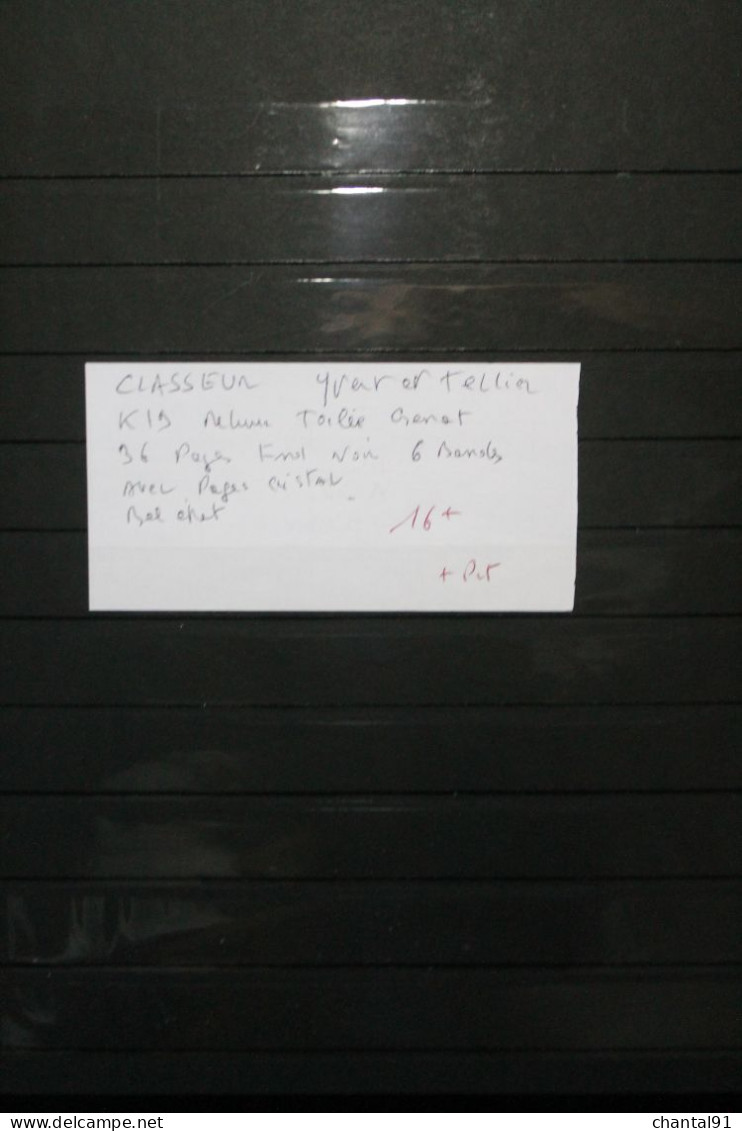 CLASSEUR Yvert et Tellier
K19 Reliure Toilée Grenat
36 Pages Fond Noir 6 Bandes
Avec Pages cristal
Bel état
16 +
+ Port
delcampe.net
chantal91